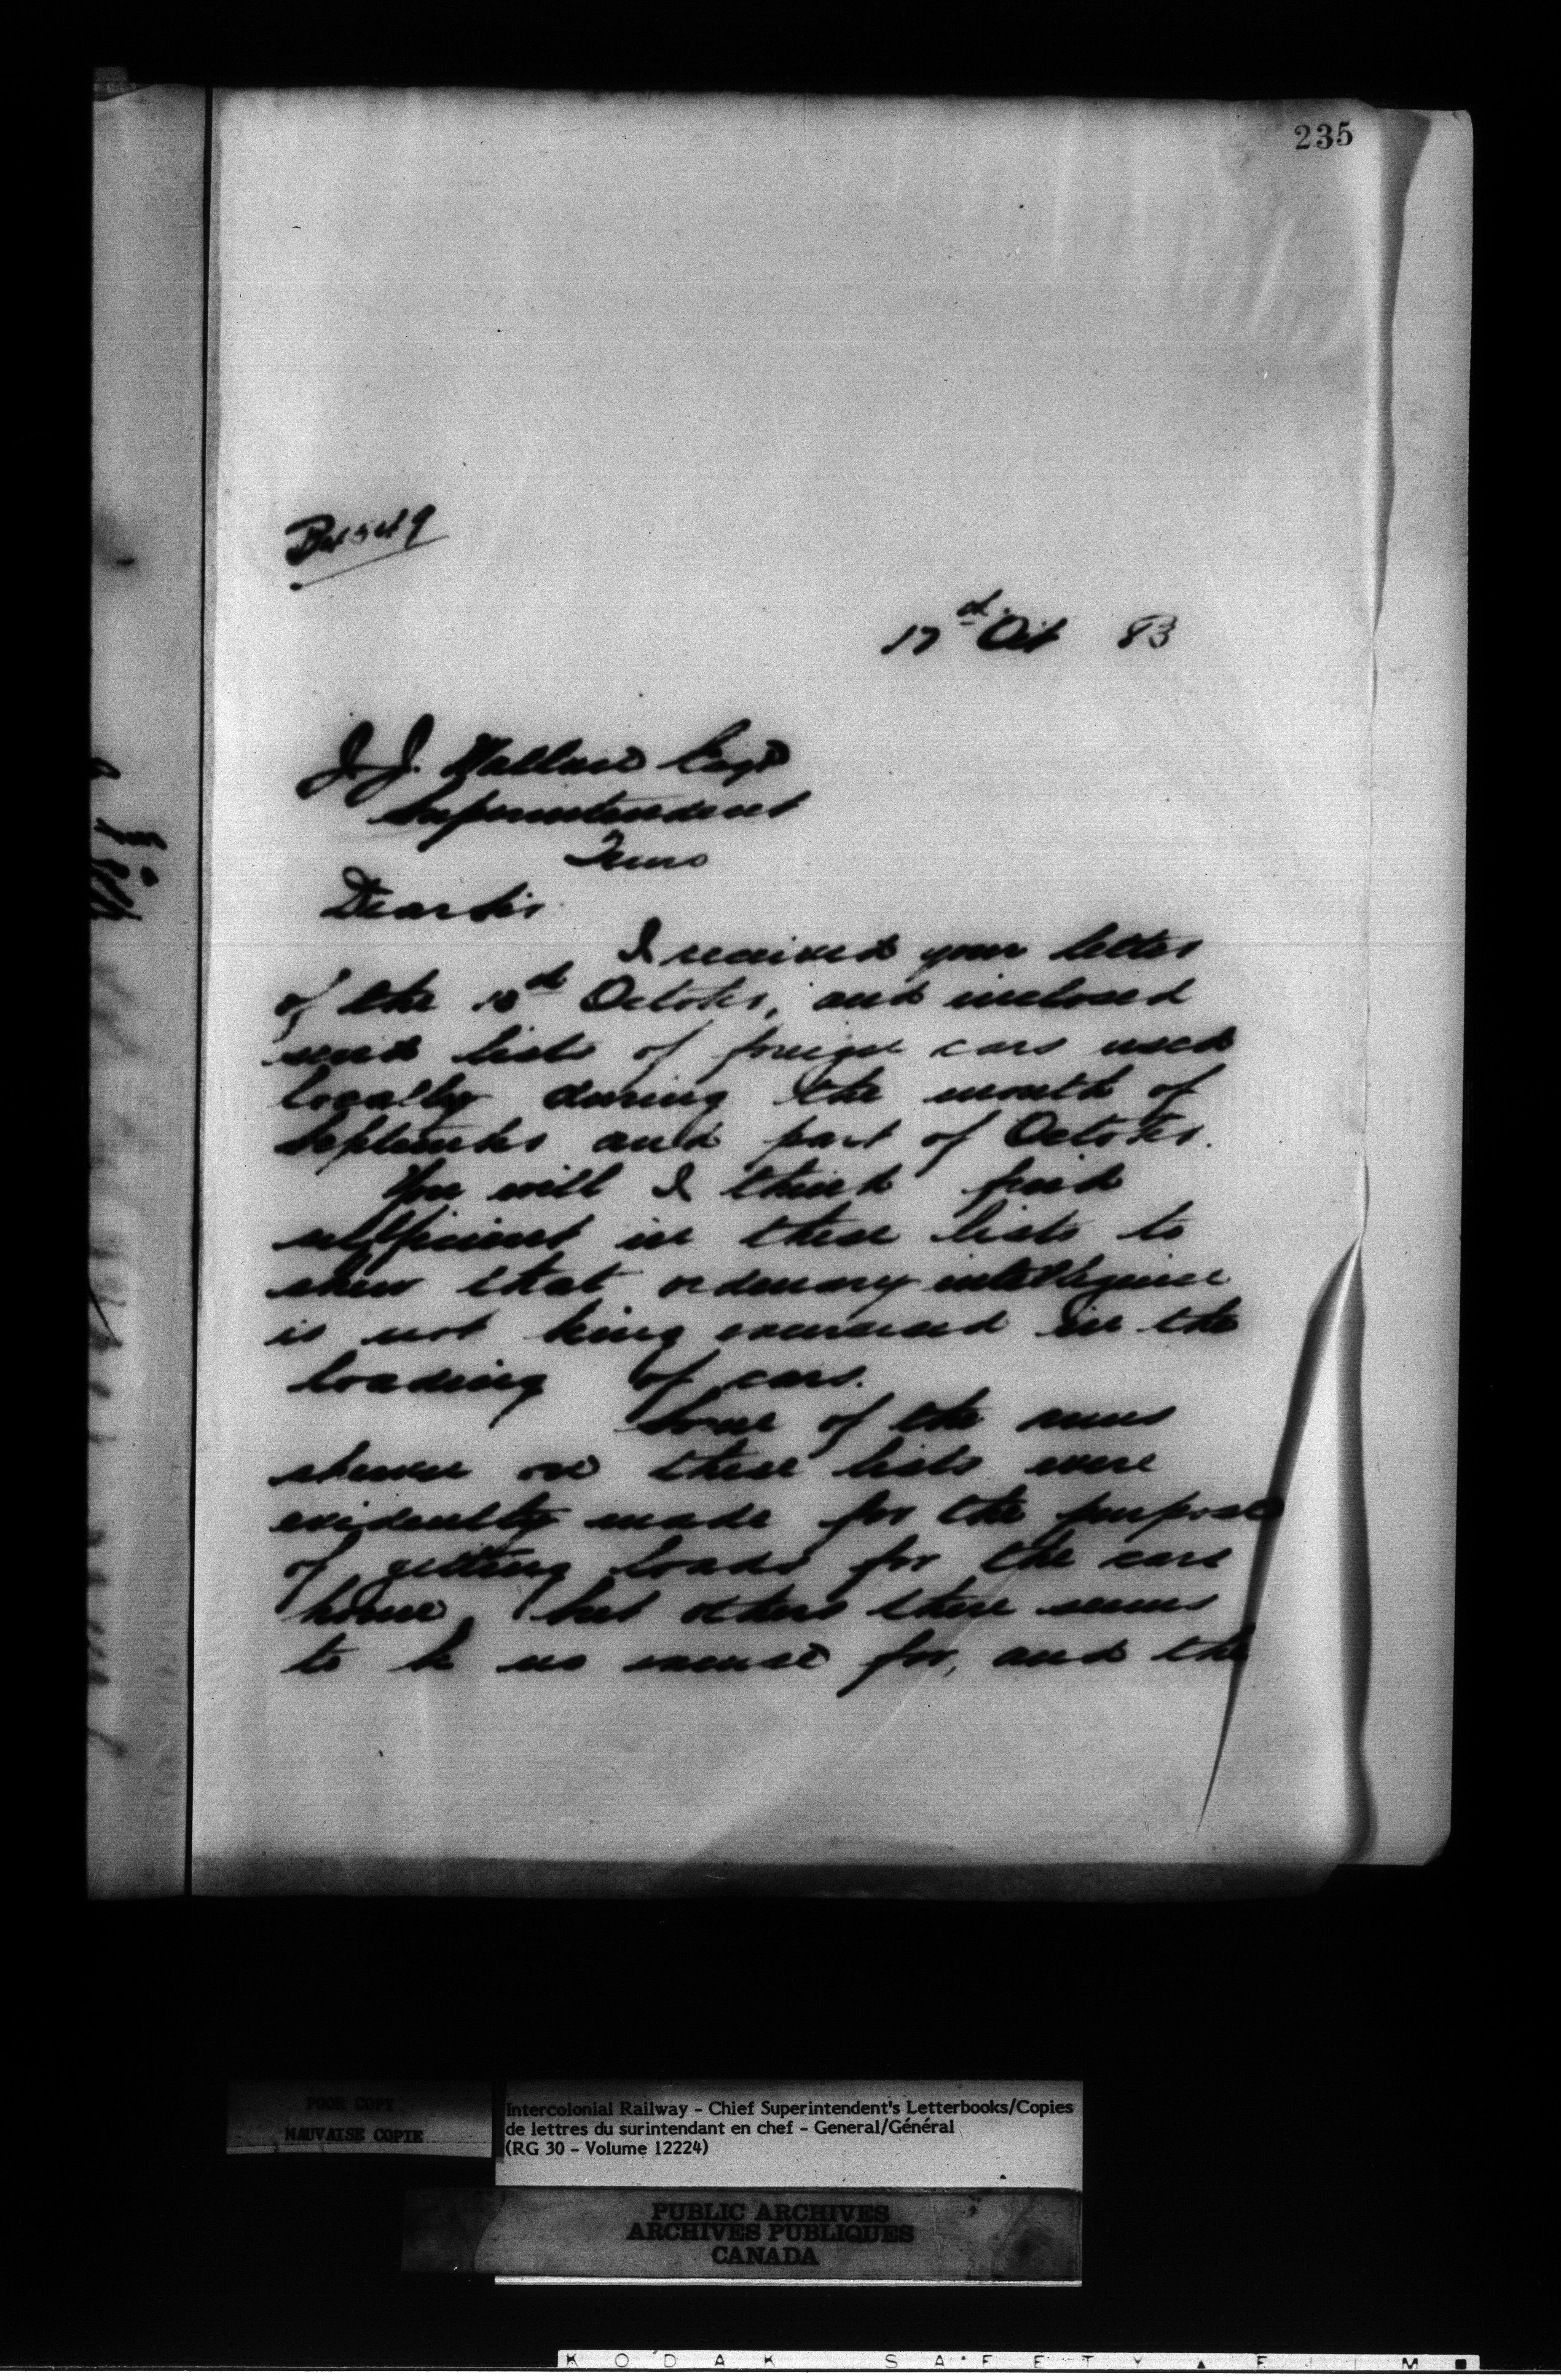 235
17th Oct 83
J. J. Wallace Esqr
Superintendent
Truro
Dear Sir
I received your letter
of the 10th October, and inclosed
send lists of foreign cars used
locally during the month of
September and part of October.
You will I think find
sufficient in these lists to
shew that ordinary intelligence
is not being exercised in the
loading of cars.
Some of the runs
shewn on these lists were
evidently made for the purpose
of getting loads for the cars
home, but others there seems
to be no excuse for, and the
POOR COPY
MAUVAISE COPIE
Intercolonial Railway - Chief Superintendent's Letterbooks/Copies
de lettres du surintendant en chef - General/Général
(RG 30 - Volume 12224)
PUBLIC ARCHIVES
ARCHIVES PUBLIQUES
CANADA
KODAK SAFETY FILM